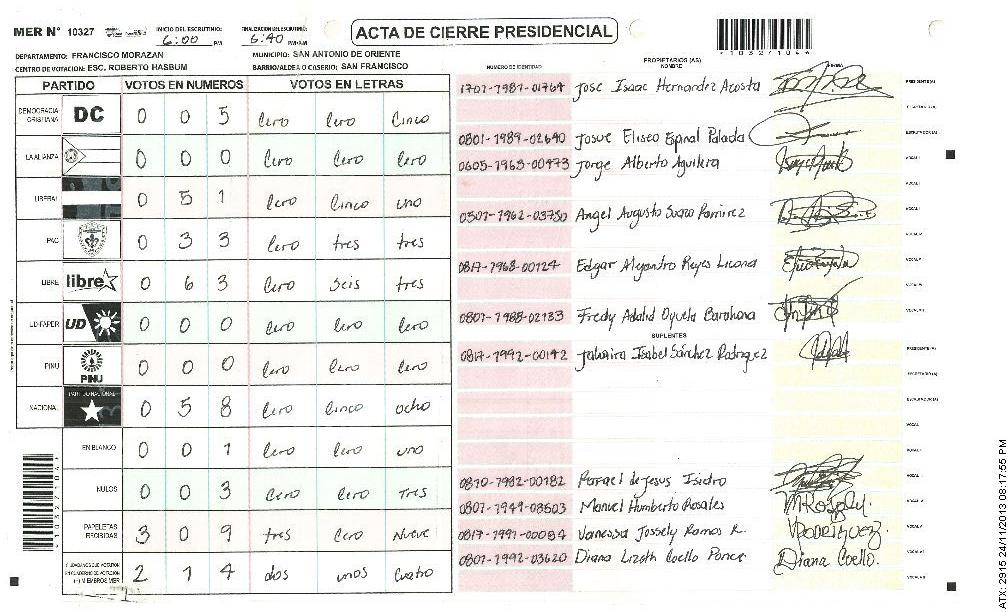 MER N° 10327 INICIO DEL ESCRUTINIO: 6:00 PM FINALIZACION DEL ESCRUTINIO: 6:40 PM
ACTA DE CIERRE PRESIDENCIAL
DEPARTAMENTO: FRANCISCO MORAZAN MUNICIPIO: SAN ANTONIO DE ORIENTE
CENTRO DE VOTACION: ESC. ROBERTO HASBUM BARRIO/ALDEA O CASERIO: SAN FRANCISCO
PARTIDO VOTOS EN NUMEROS VOTOS EN LETRAS
DEMOCRACIA CRISTIANA DC 0 0 5 Cero Cero Cinco
LA ALIANZA 0 0 0 Cero Cero Cero
LIBERAL 0 5 1 Cero Cinco uno
PAC 0 3 3 Cero tres tres
LIBRE libre 0 6 3 Cero Seis tres
UD-FAPER UD 0 0 0 Cero Cero Cero
PINU PINU 0 0 0 Cero Cero Cero
NACIONAL PARTIDO NACIONAL 0 5 8 Cero Cinco ocho
EN BLANCO 0 0 1 Cero Cero uno
NULOS 0 0 3 Cero Cero Tres
PAPELETAS RECIBIDAS 3 0 9 tres Cero Nueve
2 1 4 dos unos Cuatro
NUMERO DE IDENTIDAD PROPIETARIOS (AS) NOMBRE FIRMA
1701-1987-01764 Jose Isaac Hernandez Acosta PRESIDENTE(A)
0801-1989-02640 Josue Eliseo Espinal Palada ESCRUTADOR(A)
0605-1968-00473 Jorge Alberto Aguilera VOCAL I
0501-1962-03750 Angel Augusto Suazo Ramirez
0817-1968-00124 Edgar Alejandro Reyes Licona
0801-1988-02133 Fredy Adalid Oyuela Barahona
SUPLENTES
0817-1992-00142 Jahaira Isabel Sánchez Rodriguez PRESIDENTE(A)
SECRETARIO(A)
ESCRUTADOR(A)
0810-1982-00182 Rafael de Jesus Isidro
0801-1949-03503 Manuel Humberto Rosales
0817-1991-00084 Vanessa Jossely Ramos R.
0801-1992-03620 Diana Lizeth Coello Ponce Diana Coello.
ATX. 2915 24/11/2013 08:17:55 PM